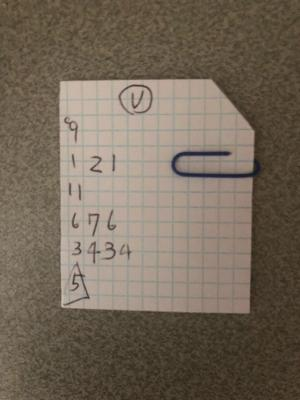 U
9
1 2 1
11
6 7 6
3 4 3 4
5